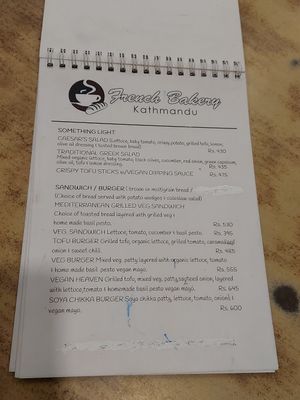 French Bakery
Kathmandu
SOMETHING LIGHT
CAESAR'S SALAD (Lettuce, baby tomato, crispy potato, grilled tofu, lemon,
olive oil dressing & toasted brown bread) Rs. 430
TRADITIONAL GREEK SALAD
Mixed organic lettuce, baby tomato, black olives, cucumber, red onion, green capsicum,
olive oil, tofu & lemon dressing) Rs. 435
CRISPY TOFU STICKS w/VEGAN DIPPING SAUCE Rs. 475
SANDWICH / BURGER (brown or multigrain bread /
(Choice of bread served with potato wedges & coleslaw salad)
MEDITERRANEAN GRILLED VEG SANDWICH
Choice of toasted bread layered with grilled veg &
home made basil pesto Rs. 530
VEG. SANDWICH Lettuce, tomato, cucumber & basil pesto. Rs. 395
TOFU BURGER Grilled tofu, organic lettuce, grilled tomato, caramalized
onion & sweet chilli. Rs. 485
VEG BURGER Mixed veg. patty, layered with organic lettuce, tomato
& home made basil pesto vegan mayo. Rs. 555
VEGAN HEAVEN Grilled tofu, mixed veg, patty, sayteed onion, layered
with lettuce, tomato & homemade basil pesto vegan mayo. Rs. 645
SOYA CHIKKA BURGER Soya chikka patty, lettuce, tomato, onion &
vegan mayo. Rs. 600